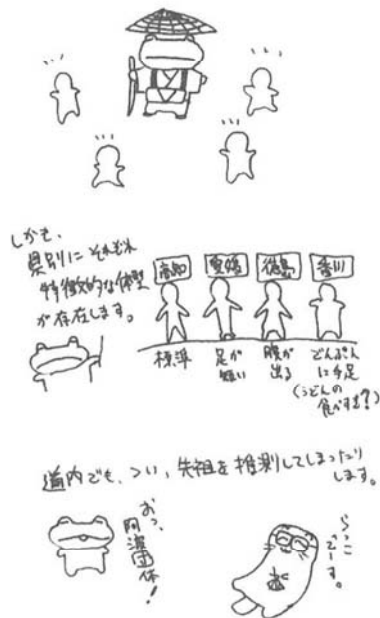 しかも、
県別に それぞれ
特徴的な体型
が存在します。
高知
愛媛
徳島
香川
標準
足が
短い
腹が
出る
ずんどん
に手足
(うどんの
食べすぎ?)
道内でも、つい、先祖を推測してしまったり
します。
おっ、
阿波団体!
らっこ
でーす。